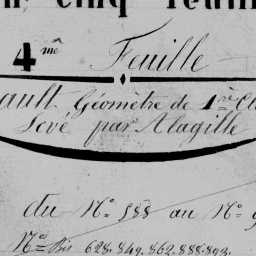 en cinq feuill
4me Feuille
ault Géomètre de 1re Cl
Levé par Alagille
du No 588 au No 9
Nos Bis 628. 849. 862. 888. 893.